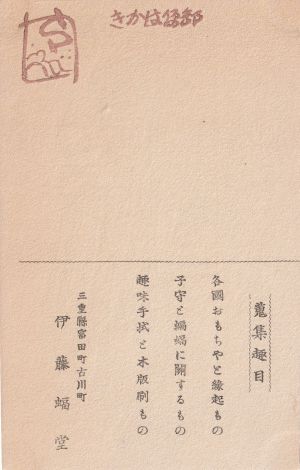 きかは倶楽部
蒐集趣目
各國おもちやと緣起もの
子守と蝙蝠に關するもの
趣味手拭と木版刷もの
三重縣富田町古川町
伊藤蝠堂